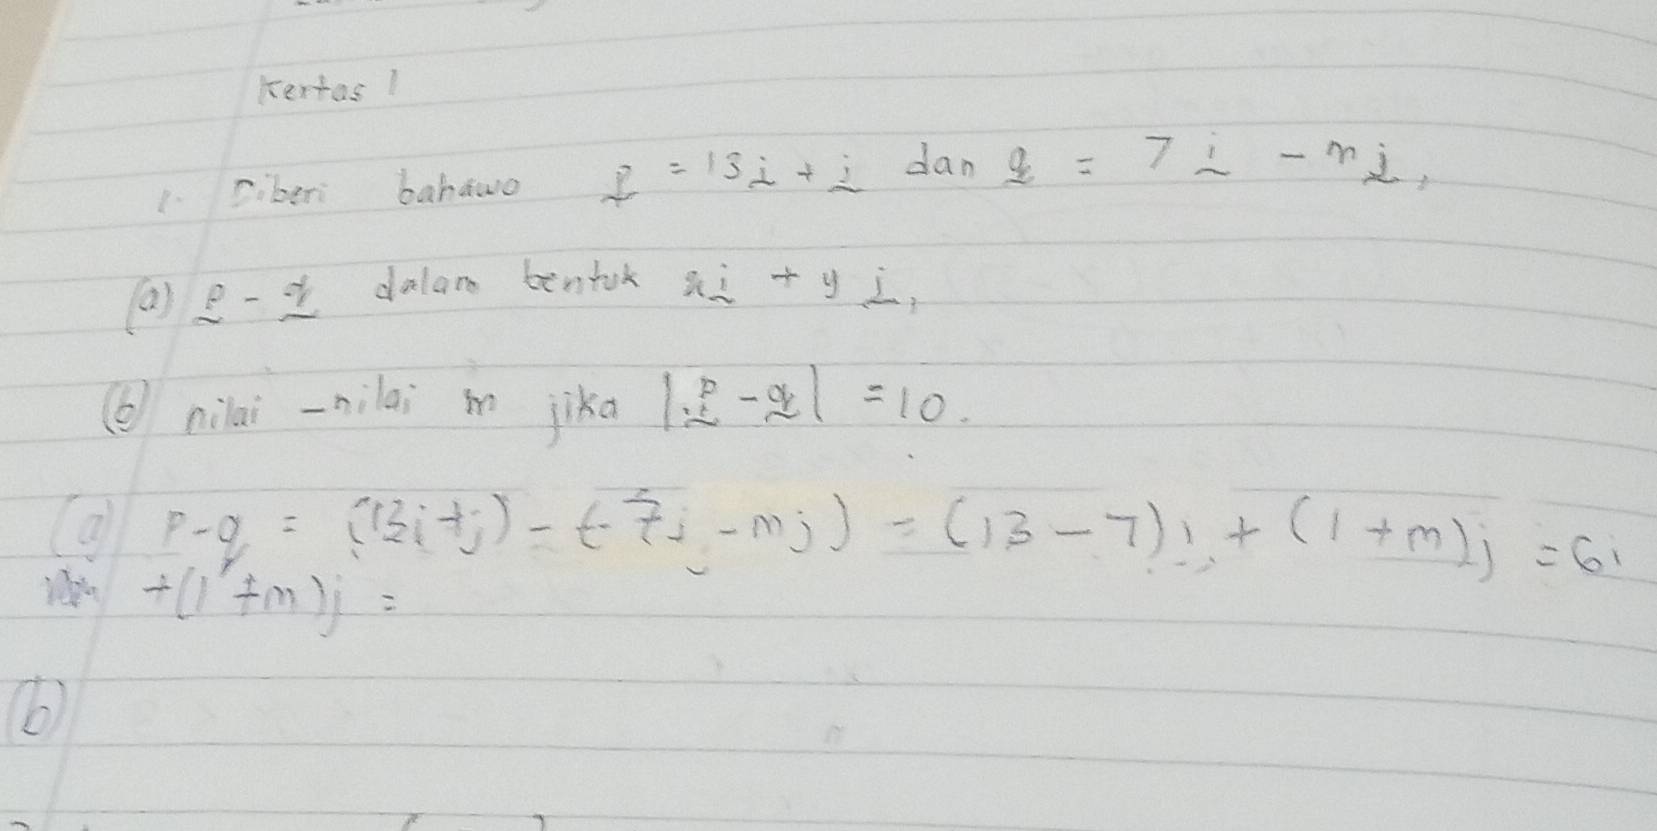 Kertas 1
1. Diberi bahawa p = 13i + j dan q = 7i - mj,
(a) p - q dalam bentuk xi + yj,
(b) nilai -nilai m jika |p - q| = 10.
(a) p-q = (13i+j) - (-7i - mj) = (13-7)i + (1+m)j = 6i
+(1+m)j =
(b)